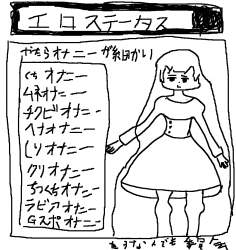 エロステータス
やたらオナニーが細かい
くちオナニー
ムネオナニー
チクビオナニー
ヘソオナニー
しりオナニー
クリオナニー
ちつくちオナニー
ラビアオナニー
Gスポオナニー